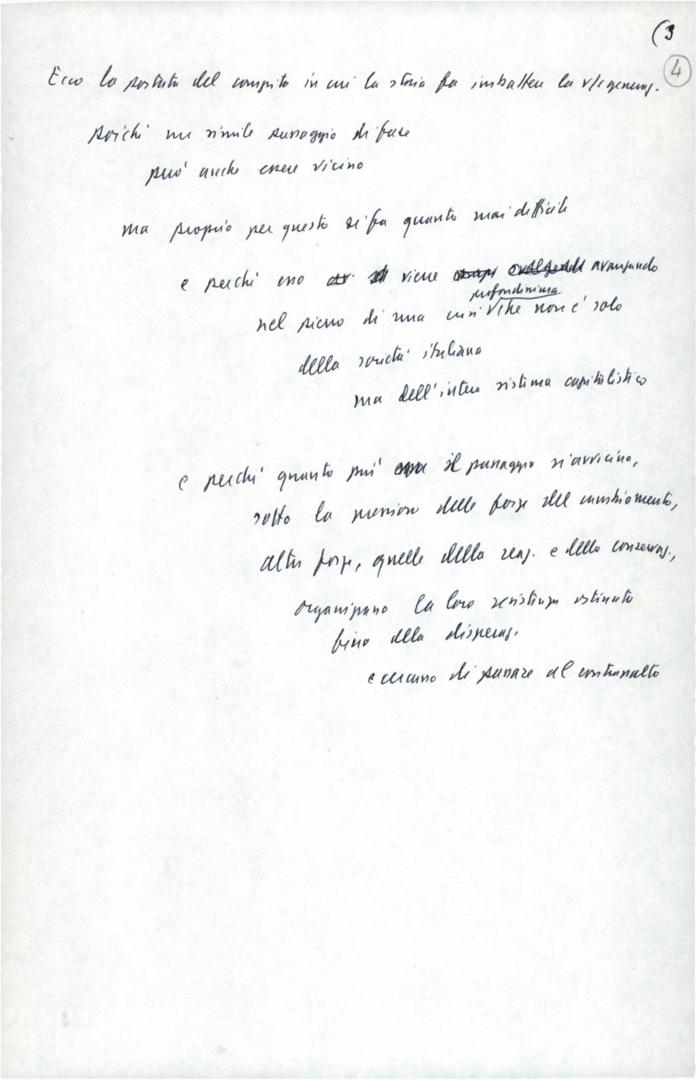 (3
4
Ecco la portata del compito in cui la storia fa imbattere la vs/ generaz.
poiché un simile passaggio di fase
può anche essere vicino
ma proprio per questo si fa quanto mai difficile
e perché esso viene avanzando
profondissima
nel pieno di una crisi che non è solo
della società italiana
ma dell'intero sistema capitalistico
e perché quanto più il passaggio si avvicina,
sotto la pressione delle forze del cambiamento,
altre forze, quelle della reaz. e della conservaz.,
organizzano la loro resistenza ostinata
fino alla disperaz.
e cercano di passare al contrassalto